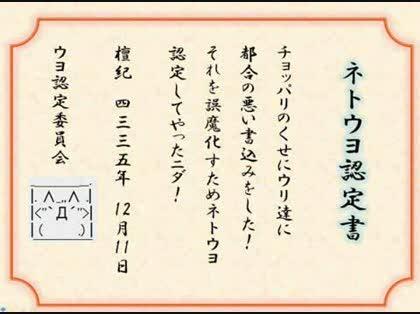 ネトウヨ認定書
チョッパリのくせにウリ達に
都合の悪い書込みをした!
それを誤魔化すためネトウヨ
認定してやったニダ!
檀紀 四三三五年 12月11日
ウヨ認定委員会
|. ∧_,,∧ .|
|<"`Д´">|
|( .)|